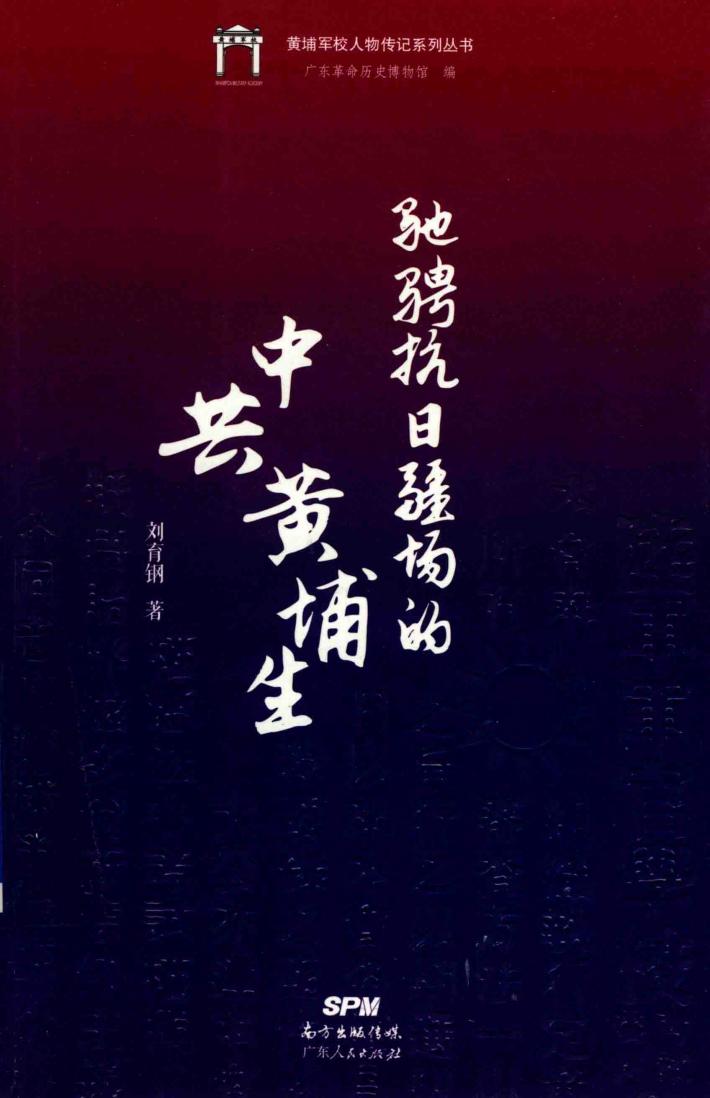 黄埔军校人物传记系列丛书
广东革命历史博物馆 编
驰骋抗日疆场的
中共黄埔生
刘育钢 著
SPM
南方出版传媒
广东人民出版社